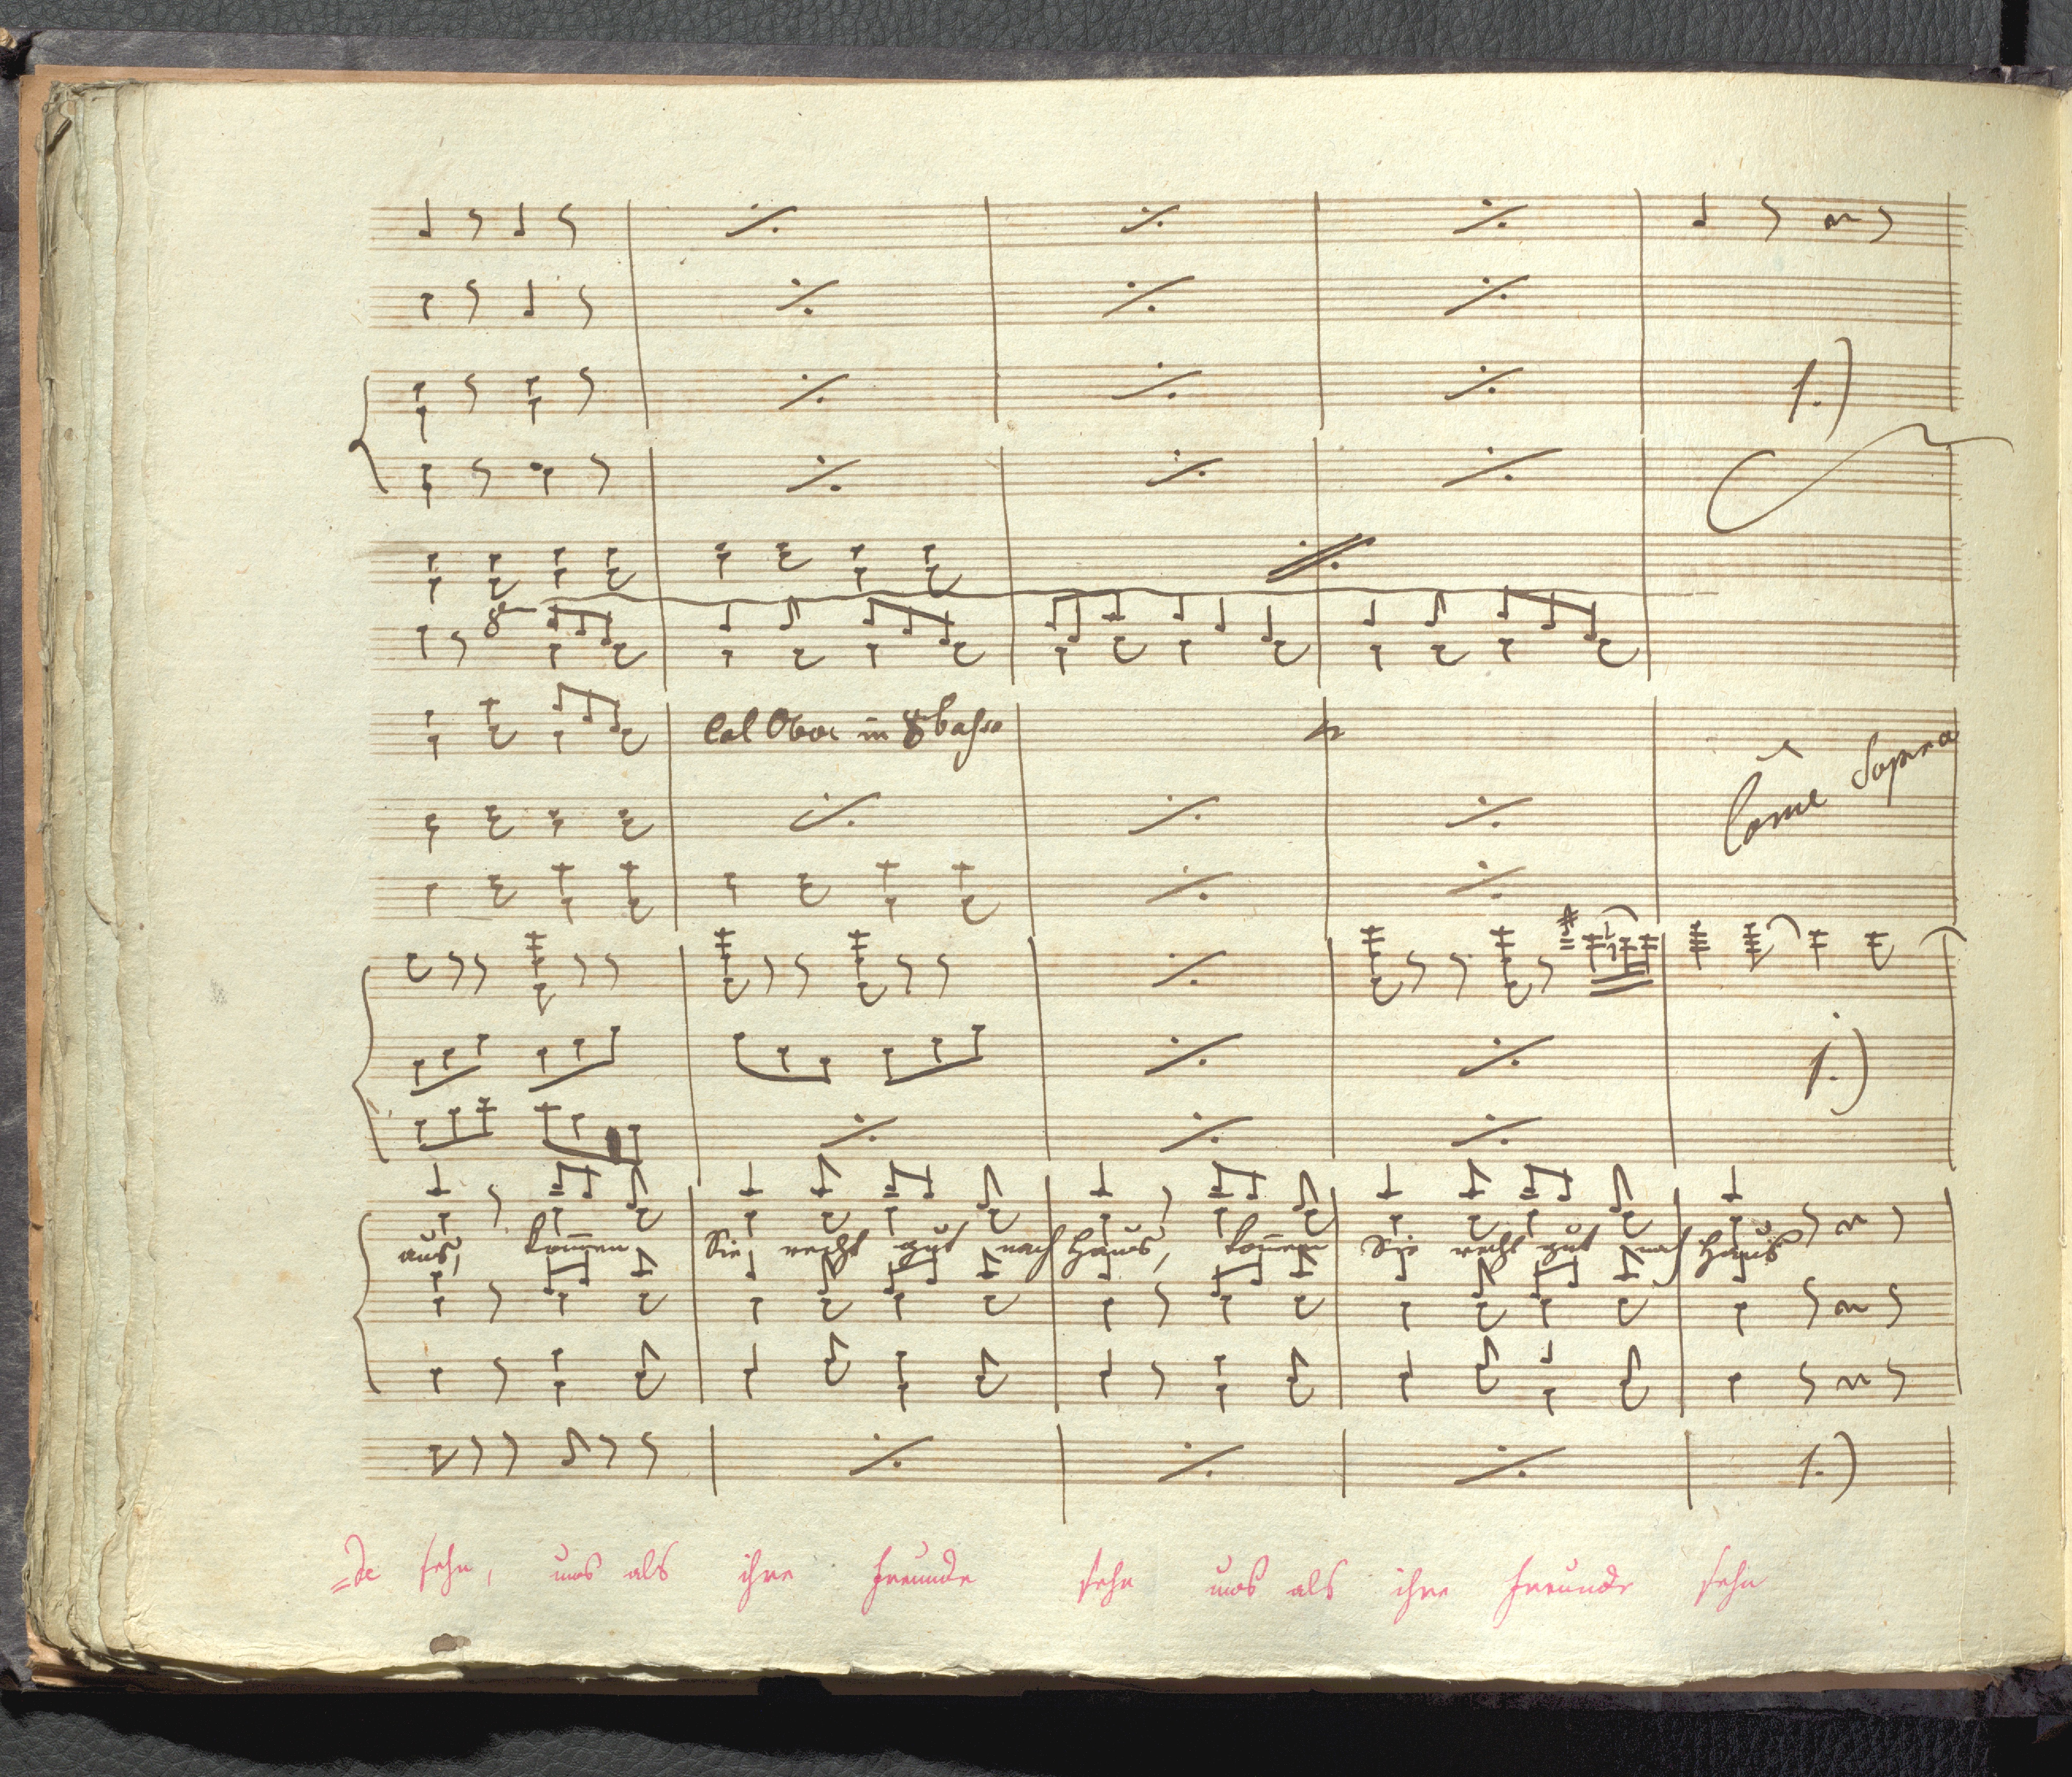 1.)
8
Col Oboe in 8 basso
Come Sopra
1.)
aus, kom̅en Sie, recht gut nach Haus, kom̅en Sie recht gut nach Haus
1.)
=de sehn, uns als ihre Freunde sehn uns als ihre Freunde sehn